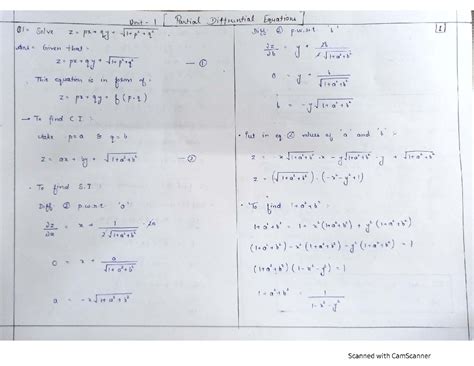 Unit - 1 [ Partial Differential Equations ]
[1]
Q1= Solve z = px + qy + √1+p²+q²
Ans= Given that :-
z = px + qy + √1+p²+q² — ①
This equation is in form of -
z = px + qy + f(p.q)
→ To find C.I :-
take p=a & q=b
z = ax + by + √1+a²+b² — ②
· To find S.I :-
Diff ② p.w.r.t 'a'
∂z/∂a = x + 1/2√1+a²+b² · 2a
0 = x + a/√1+a²+b²
a = -x√1+a²+b²
Diff ② p.w.r.t 'b'
∂z/∂b = y + 2b/2√1+a²+b²
0 = y + b/√1+a²+b²
b = -y√1+a²+b²
· Put in eq ② values of 'a' and 'b' :-
z = -x√1+a²+b² · x - y√1+a²+b² · y + √1+a²+b²
z = √1+a²+b² · (-x²-y²+1)
· To find 1+a²+b² :
1+a²+b² = 1+ x²(1+a²+b²) + y²(1+a²+b²)
(1+a²+b²) - x²(1+a²+b²) - y²(1+a²+b²) = 1
(1+a²+b²)(1-x²-y²) = 1
1+a²+b² = 1/1-x²-y²
Scanned with CamScanner